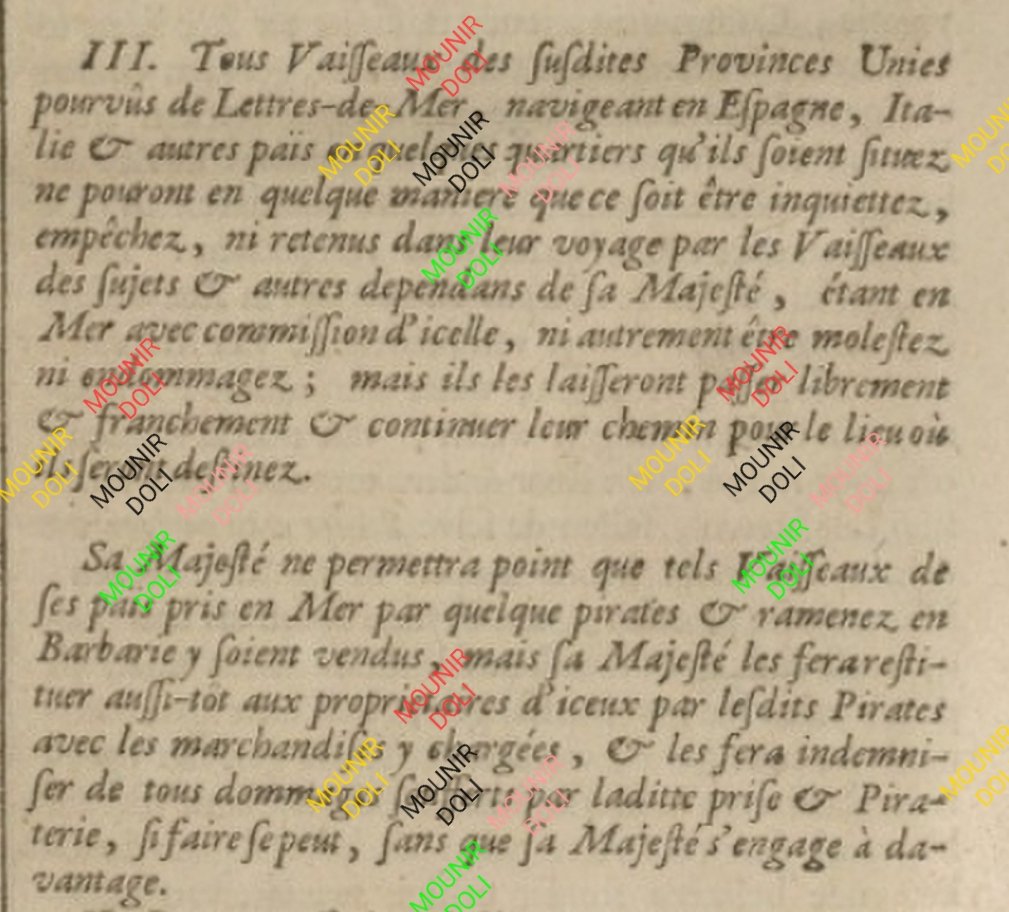 III. Tous Vaiſſeaux des ſuſdites Provinces Unies
pourvûs de Lettres-de-Mer, navigeant en Eſpagne, Ita-
lie & autres païs en quelques quartiers qu'ils ſoient ſituez
ne pouront en quelque maniere que ce ſoit être inquiettez,
empêchez, ni retenus dans leur voyage par les Vaiſſeaux
des ſujets & autres dependans de ſa Majeſté, étant en
Mer avec commiſſion d'icelle, ni autrement être moleſtez
ni endommagez; mais ils les laiſſeront paſſer librement
& franchement & continuer leur chemin pour le lieu où
ils ſeront deſtinez.
Sa Majeſté ne permettra point que tels Vaiſſeaux de
ſes païs pris en Mer par quelque pirates & ramenez en
Barbarie y ſoient vendus, mais ſa Majeſté les fera reſti-
tuer auſſi-tôt aux proprietaires d'iceux par leſdits Pirates
avec les marchandiſes y chargées, & les fera indemni-
ſer de tous dommages ſoufferts par laditte priſe & Pira-
terie, ſi faire ſe peut, ſans que ſa Majeſté s'engage à da-
vantage.
MOUNIR
DOLI